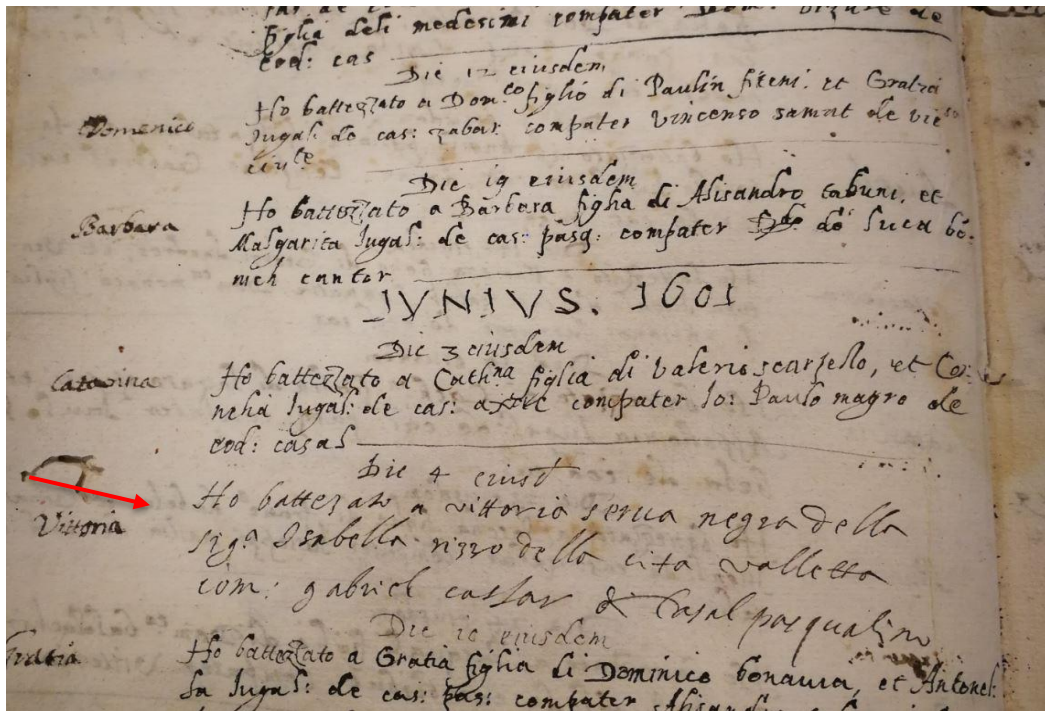 figlia deli medesimi compater
eod: cas
Die 12 eiusdem
Domenico
Ho battezzato a Dom.co figlio di Paulin et Gratia
Jugal: de cas: zabar compater vincenso samut de
Die 19 eiusdem
Barbara
Ho battezzato a Barbara figlia di Alisandro tabuni, et
Malgarita Jugal: de cas: pasq: compater do luca bo-
nich cantor
IVNIVS. 1601
Die 3 eiusdem
Catarina
Ho battezzato a Cath.na figlia di valerio scarpello, et Cor
nelia Jugal: de cas: compater Io: Paulo magro de
eod: casal
Die 4 eiusd
Vittoria
Ho battezato a vittoria serva negra della
sig.a Isabella rizzo della cita valletta
com: gabriel cassar di Casal pasqualino
Die 10 eiusdem
Gratia
Ho battezzato a Gratia figlia di Dominico bonavia, et Antonel:
la Jugal: de cas: pas: compater